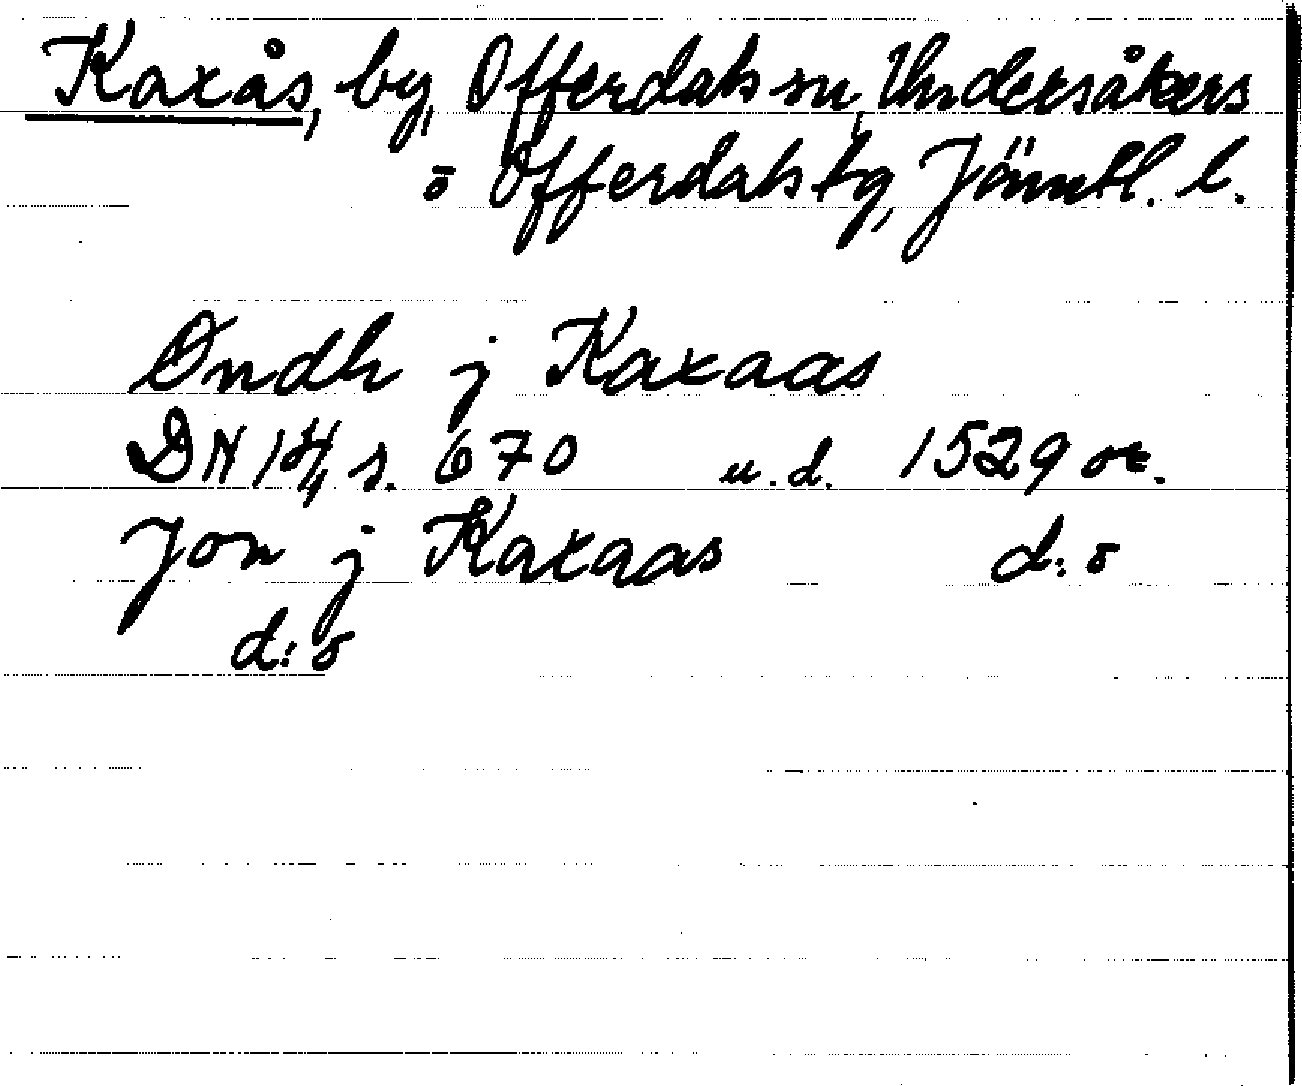 Kaxås, by, Offerdals sn, Undersåkers
o Offerdals tg, Jämtl. l.
Øndh j Kaxaas
DN 14, s. 670 u.d. 1529 or.
Jon j Kaxaas d:o
d:o